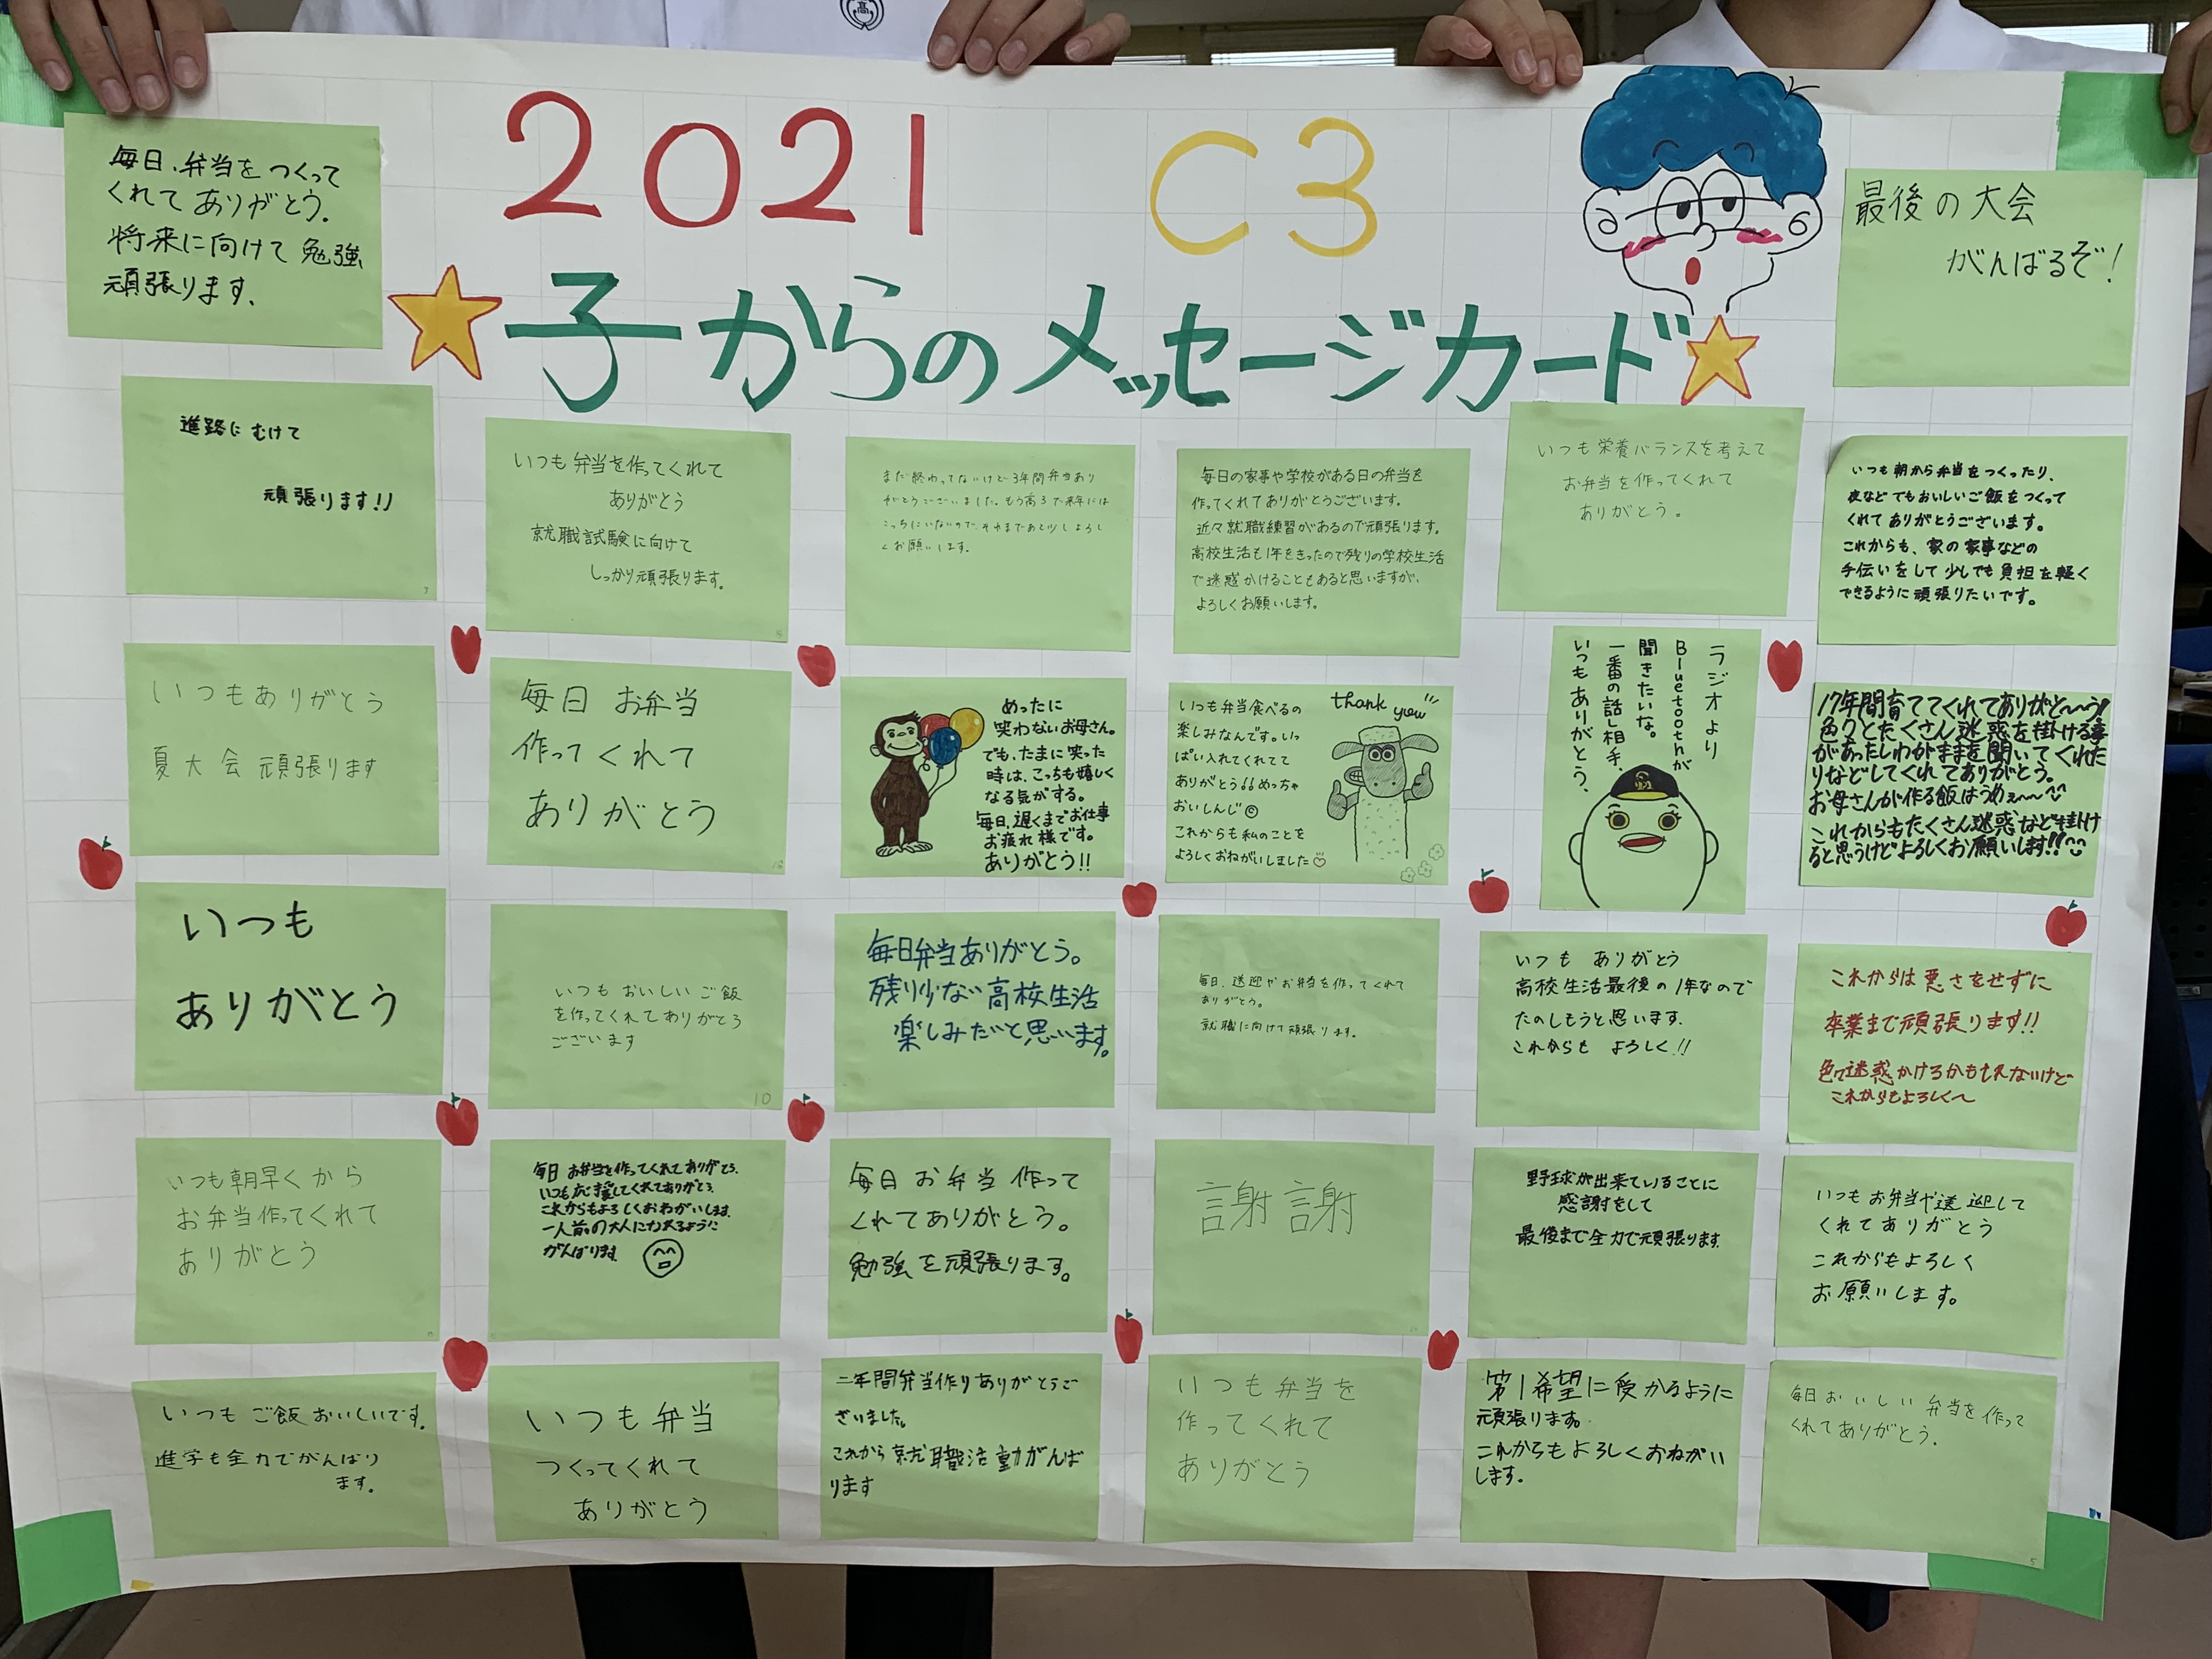 2021 C3
子からのメッセージカード
毎日、弁当をつくって
くれてありがとう。
将来に向けて勉強
頑張ります、
最後の大会
がんばるぞ!
進路にむけて
頑張ります!!
いつも弁当を作ってくれて
ありがとう
就職試験に向けて
しっかり頑張ります。
まだ終わってないけど3年間弁当あり
がとうございました。もう高3で来年には
こっちにいないので、それまであと少しよろし
くお願いします。
毎日の家事や学校がある日の弁当を
作ってくれてありがとうございます。
近々就職練習があるので頑張ります。
高校生活も1年をきったので残りの学校生活
で迷惑かけることもあると思いますが、
よろしくお願いします。
いつも栄養バランスを考えて
お弁当を作ってくれて
ありがとう。
いつも朝から弁当をつくったり、
夜などでもおいしいご飯をつくって
くれてありがとうございます。
これからも、家の家事などの
手伝いをして少しでも負担を軽く
できるように頑張りたいです。
いつもありがとう
夏大会頑張ります
毎日お弁当
作ってくれて
ありがとう
めったに
笑わないお母さん。
でも、たまに笑った
時は、こっちも嬉しく
なる気がする。
毎日、遅くまでお仕事
お疲れ様です。
ありがとう!!
thank you
いつも弁当食べるの
楽しみなんです。いっ
ぱい入れてくれてて
ありがとう!!めっちゃ
おいしんじ☺
これからも私のことを
よろしくおねがいしました♡
ラジオより
Bluetoothが
聞きたいな。
一番の話し相手、
いつもありがとう、
17年間育ててくれてありがと〜〜う!
色々とたくさん迷惑を掛ける事
があったしわがままを聞いてくれた
りなどしてくれてありがとう。
お母さんが作る飯はうめぇ〜〜
これからもたくさん迷惑など掛け
ると思うけどよろしくお願いします!!
いつも
ありがとう
いつもおいしいご飯
を作ってくれてありがとう
ございます
10
毎日弁当ありがとう。
残り少ない高校生活
楽しみだと思います。
毎日、送迎やお弁当を作ってくれて
ありがとう。
就職に向けて頑張ります。
いつもありがとう
高校生活最後の1年なので
たのしもうと思います.
これからもよろしく!!
これからは悪さをせずに
卒業まで頑張ります!!
色々迷惑かけるかもしれないけど
これからもよろしく〜
いつも朝早くから
お弁当作ってくれて
ありがとう
毎日お弁当を作ってくれてありがとう.
いつも応援してくれてありがとう.
これからもよろしくおねがいします.
一人前の大人になれるように
がんばります.
毎日お弁当作って
くれてありがとう。
勉強を頑張ります。
謝謝
野球が出来ていることに
感謝をして
最後まで全力で頑張ります.
いつもお弁当や送迎して
くれてありがとう
これからもよろしく
お願いします。
いつもご飯おいしいです。
進学も全力でがんばり
ます。
いつも弁当
つくってくれて
ありがとう
二年間弁当作りありがとうご
ざいました。
これから就職活動がんば
ります
いつも弁当を
作ってくれて
ありがとう
第1希望に受かるように
頑張ります。
これからもよろしくおねがい
します。
毎日おいしい弁当を作って
くれてありがとう.
5